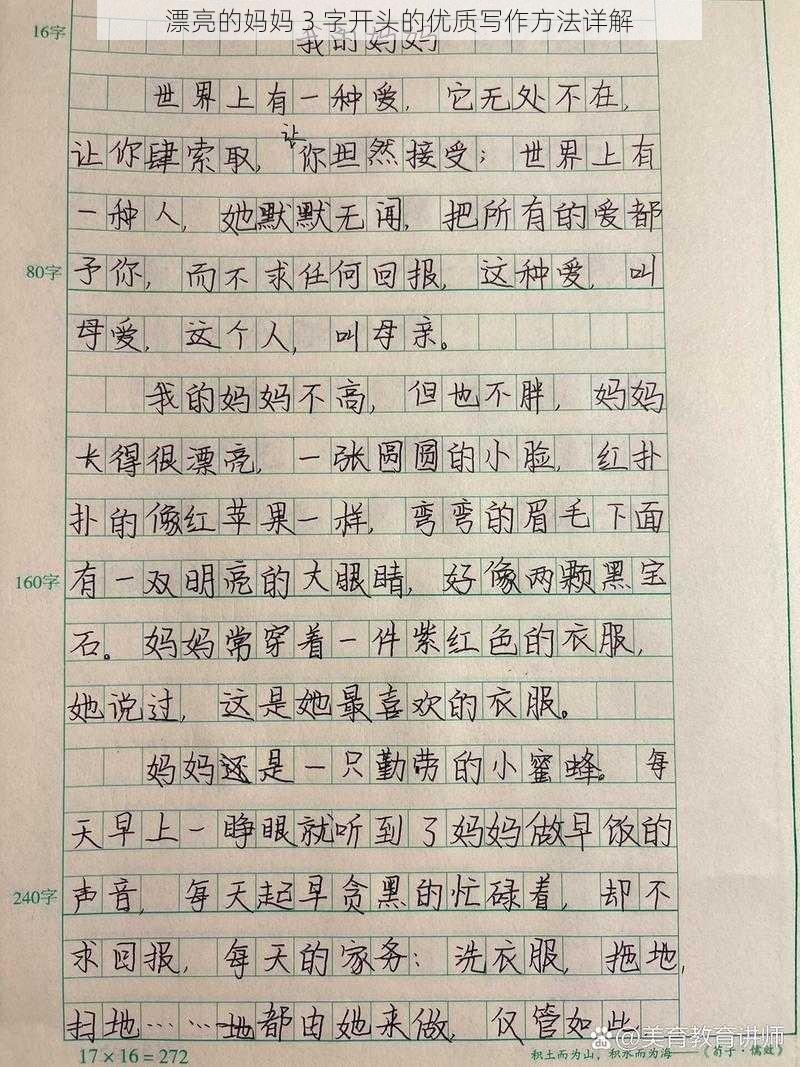 漂亮的妈妈 3 字开头的优质写作方法详解
16字
我的妈妈
世界上有一种爱，它无处不在，
让你肆索取，让你坦然接受；世界上有
一种人，她默默无闻，把所有的爱都
80字
予你，而不求任何回报，这种爱，叫
母爱，这个人，叫母亲。
我的妈妈不高，但也不胖，妈妈
长得很漂亮，一张圆圆的小脸，红扑
扑的像红苹果一样，弯弯的眉毛下面
160字
有一双明亮的大眼睛，好像两颗黑宝
石。妈妈常穿着一件紫红色的衣服，
她说过，这是她最喜欢的衣服。
妈妈还是一只勤劳的小蜜蜂。每
天早上一睁眼就听到了妈妈做早饭的
240字
声音，每天起早贪黑的忙碌着，却不
求回报，每天的家务：洗衣服，拖地，
扫地……都由她来做，仅管如此，
17×16=272
积土而为山，积水而为海——《荀子·儒效》
美育教育讲师